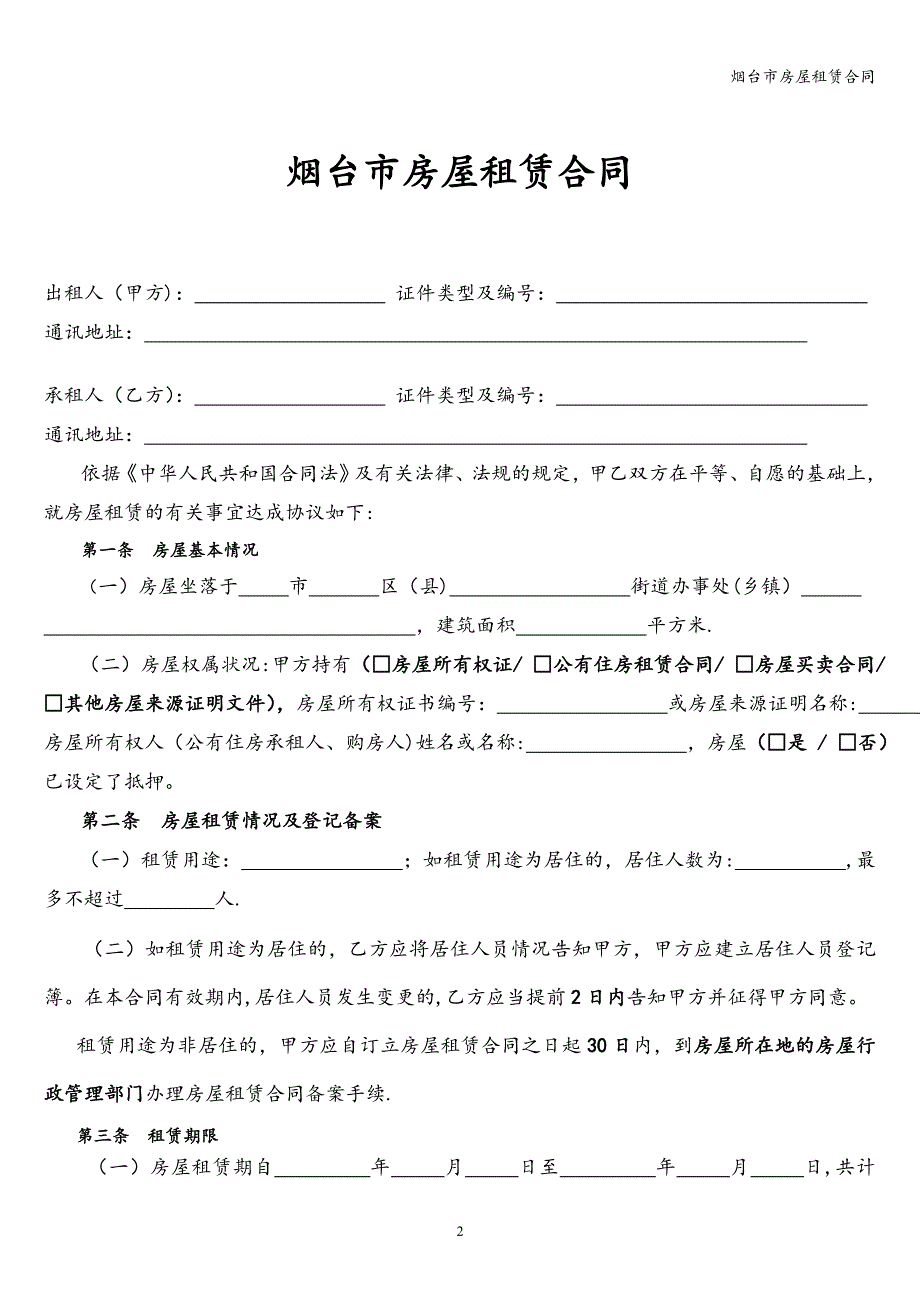 烟台市房屋租赁合同
烟台市房屋租赁合同
出租人（甲方)：___________________ 证件类型及编号：_______________________________
通讯地址：__________________________________________________________________
承租人（乙方)：___________________ 证件类型及编号：_______________________________
通讯地址：__________________________________________________________________
依据《中华人民共和国合同法》及有关法律、法规的规定，甲乙双方在平等、自愿的基础上，
就房屋租赁的有关事宜达成协议如下:
第一条　房屋基本情况
（一）房屋坐落于_____市_______区（县)__________________街道办事处(乡镇）______
_____________________________________，建筑面积_____________平方米.
（二）房屋权属状况:甲方持有（□房屋所有权证/ □公有住房租赁合同/ □房屋买卖合同/
□其他房屋来源证明文件)，房屋所有权证书编号：_________________或房屋来源证明名称:______
房屋所有权人（公有住房承租人、购房人)姓名或名称:________________，房屋（□是 / □否）
已设定了抵押。
第二条　房屋租赁情况及登记备案
（一）租赁用途：________________；如租赁用途为居住的，居住人数为:___________,最
多不超过_________人.
（二）如租赁用途为居住的，乙方应将居住人员情况告知甲方，甲方应建立居住人员登记
簿。在本合同有效期内,居住人员发生变更的,乙方应当提前2日内告知甲方并征得甲方同意。
租赁用途为非居住的，甲方应自订立房屋租赁合同之日起30日内，到房屋所在地的房屋行
政管理部门办理房屋租赁合同备案手续.
第三条　租赁期限
（一）房屋租赁期自__________年_____月_____日至__________年_____月_____日,共计
2